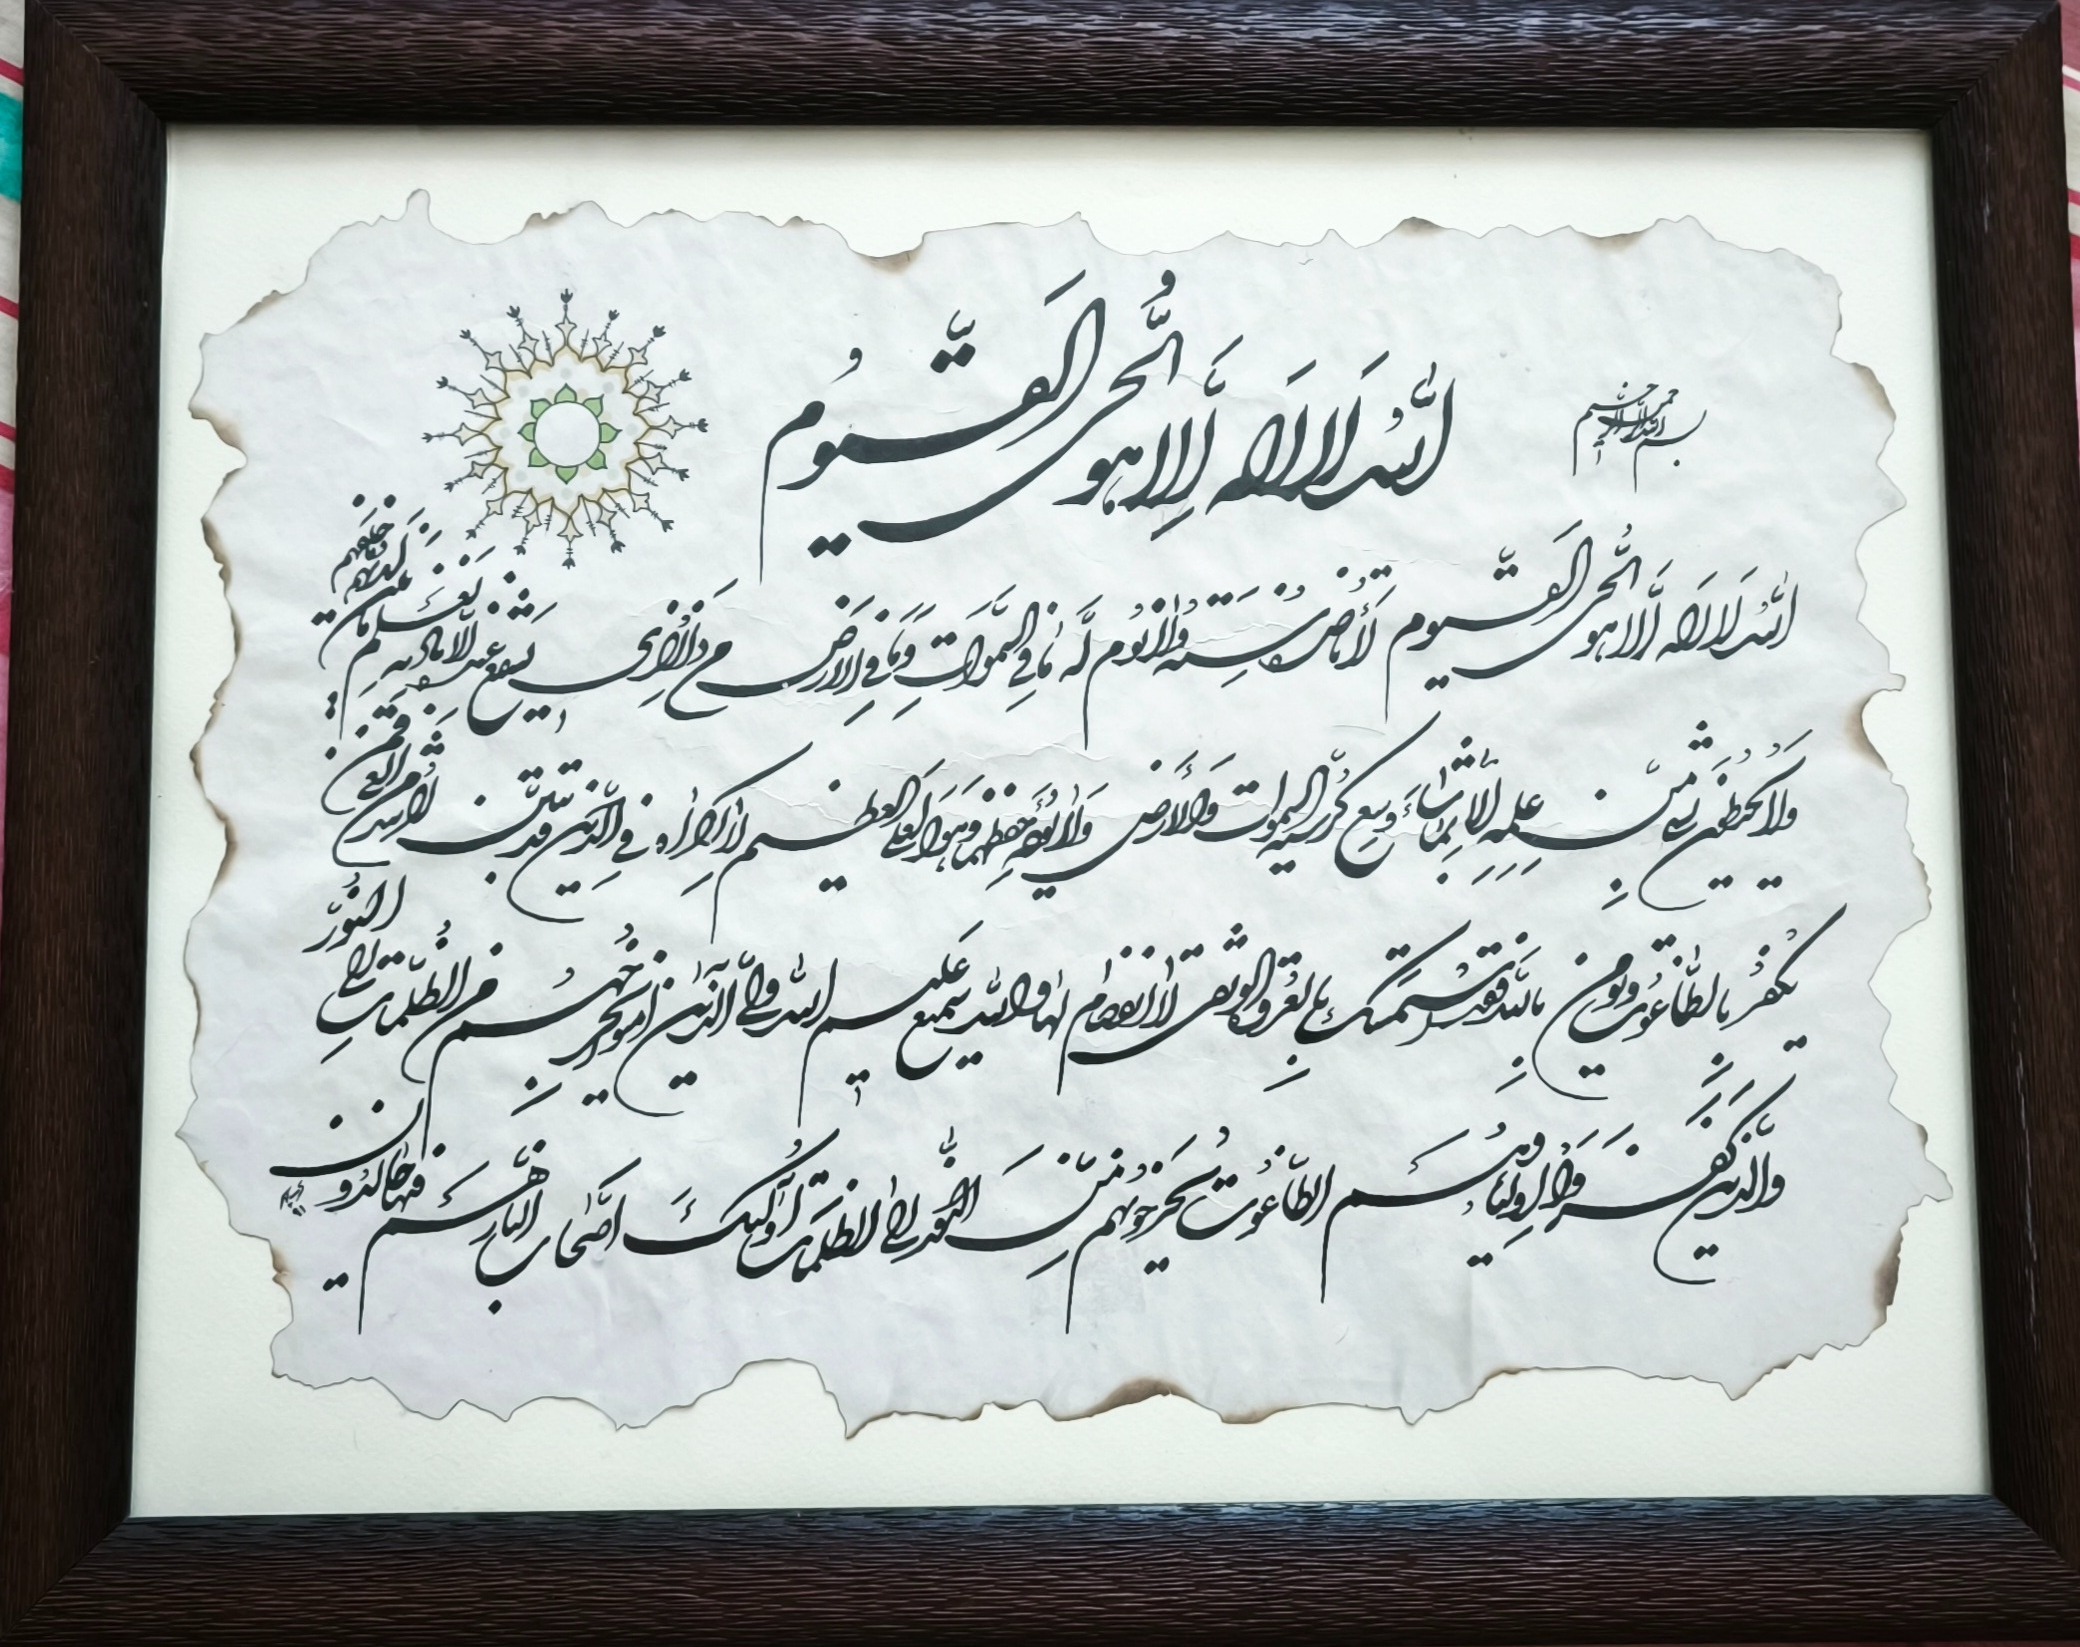 بسم الله الرحمن الرحیم
اللّٰه لَا اِلَه اِلَّا هو الحَیُّ القَیّوُم
اللّٰه لَا اِلَه اِلَّا هو الحَیُّ القَیّوم لَا تَأخُذُهُ سِنَةٌ وَلَا نَوُم لَّه مَا فِی السَّمٰوَاتِ وَمَا فِی الارَضِ مَن ذَا الَّذِی یَشفَعُ عِندَهُ اِلَّا بِاِذنِهِ یَعلَمُ مَا بَینَ اَیدِیهِم وَمَا خَلفَهُم
وَلَا یُحیُطُونَ بِشَیءٍ مِّنْ عِلمِهِ اِلَّا بِمَا شَاءَ وَسِعَ کُرسِیُّهُ السَّمٰواتِ وَالاَرَضَ وَلَا یَؤُدُهُ حِفظُهُمَا وَهُوَ العَلِیُّ العَظیم لَا اِکرَاهَ فِی الدِّینِ قَد تَّبَیَّنَ الرُّشدُ مِنَ الغَیِّ فَمَن
یَکفُر بِالطَّاغُوتِ وَیُؤمِن بِاللهِ فَقَدِ استَمسَکَ بِالعُروَةِ الوُثقَی لَا انفِصَامَ لَهَا وَاللهُ سَمیعٌ عَلیم اللهُ وَلِیُّ الَّذِینَ اٰمَنُوا یُخرِجُهُم مِّنَ الظُّلُمَاتِ اِلَی النُّور
وَالَّذِینَ کَفَرُوا اَولِیَاؤُهُمُ الطَّاغُوتُ یُخرِجُونَهُم مِّنَ النُّورِ اِلَی الظُّلُمَاتِ اُولٰئِکَ اَصحَابُ النَّارِ هُم فِیهَا خَالِدُون